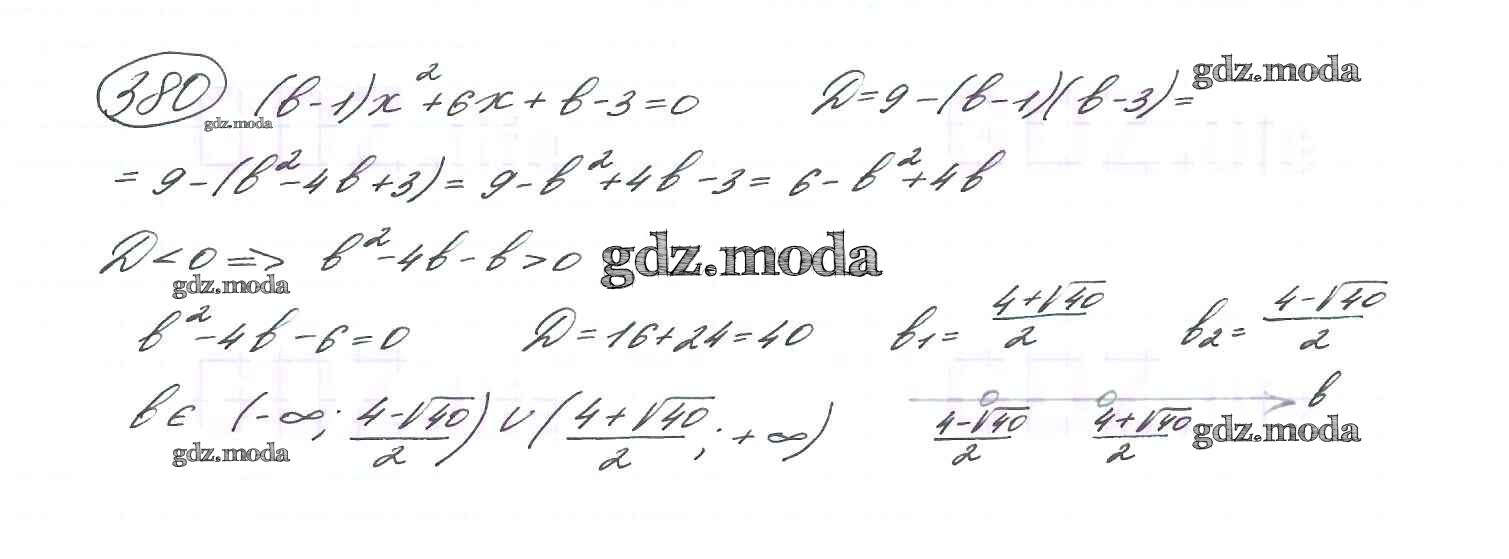 380 (b-1)x²+6x+b-3=0 D=9-(b-1)(b-3)= gdz.moda
gdz.moda
=9-(b²-4b+3)=9-b²+4b-3=6-b²+4b
D<0 => b²-4b-b>0 gdz.moda
gdz.moda
b²-4b-6=0 D=16+24=40 b₁=(4+√40)/2 b₂=(4-√40)/2
b∈(-∞; (4-√40)/2)∪((4+√40)/2; +∞) b
(4-√40)/2 (4+√40)/2 gdz.moda
gdz.moda